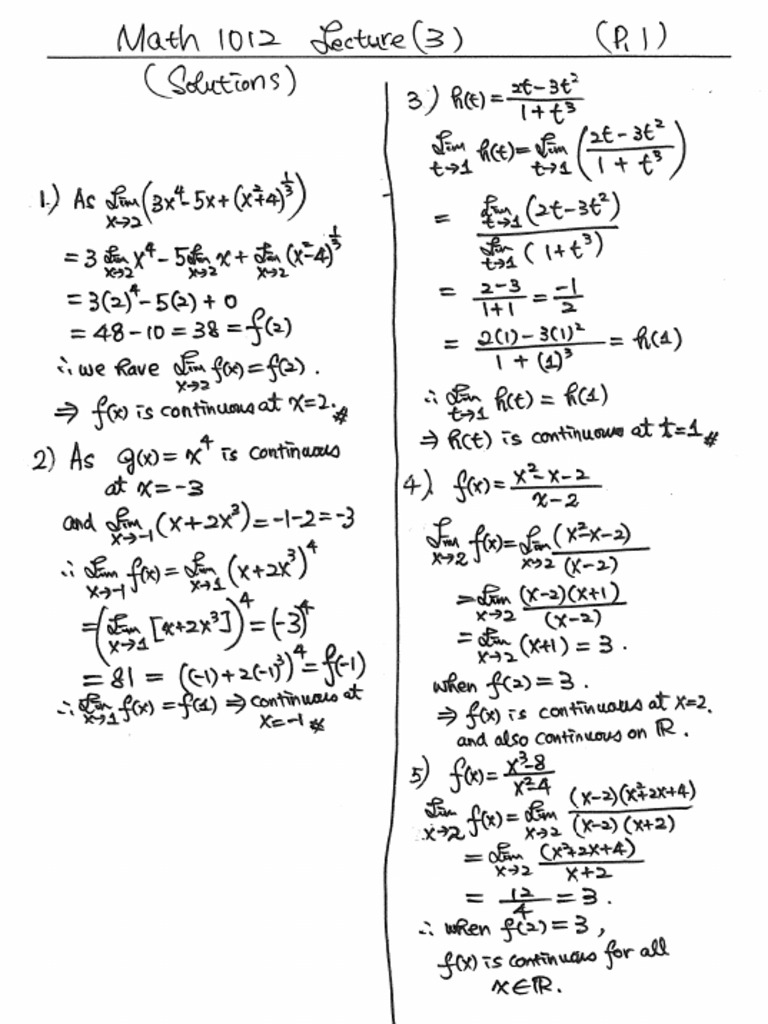 Math 1012 Lecture (3) (P.1)
(Solutions)
1.) As Lim x→2 (3x⁴-5x+(x²+4)^(1/3))
= 3 Lim x→2 x⁴ - 5 Lim x→2 x + Lim x→2 (x²-4)^(1/3)
= 3(2)⁴ - 5(2) + 0
= 48 - 10 = 38 = f(2)
∴ we have Lim x→2 f(x) = f(2).
⇒ f(x) is continuous at x=2. #
2) As g(x) = x⁴ is continuous
at x = -3
and Lim x→-1 (x+2x³) = -1-2 = -3
∴ Lim x→-1 f(x) = Lim x→1 (x+2x³)⁴
= (Lim x→1 [x+2x³])⁴ = (-3)⁴
= 81 = ((-1)+2(-1)³)⁴ = f(-1)
∴ Lim x→1 f(x) = f(1) ⇒ continuous at
x=-1 #
3) h(t) = (2t-3t²)/(1+t³)
Lim t→1 h(t) = Lim t→1 ((2t-3t²)/(1+t³))
= (Lim t→1 (2t-3t²))/(Lim t→1 (1+t³))
= (2-3)/(1+1) = -1/2
= (2(1)-3(1)²)/(1+(1)³) = h(1)
∴ Lim t→1 h(t) = h(1)
⇒ h(t) is continuous at t=1 #
4). f(x) = (x²-x-2)/(x-2)
Lim x→2 f(x) = Lim x→2 (x²-x-2)/(x-2)
= Lim x→2 (x-2)(x+1)/(x-2)
= Lim x→2 (x+1) = 3.
when f(2) = 3.
⇒ f(x) is continuous at x=2.
and also continuous on ℝ.
5) f(x) = (x³-8)/(x²-4)
Lim x→2 f(x) = Lim x→2 (x-2)(x²+2x+4)/(x-2)(x+2)
= Lim x→2 (x²+2x+4)/(x+2)
= 12/4 = 3.
∴ when f(2) = 3,
f(x) is continuous for all
x∈ℝ.